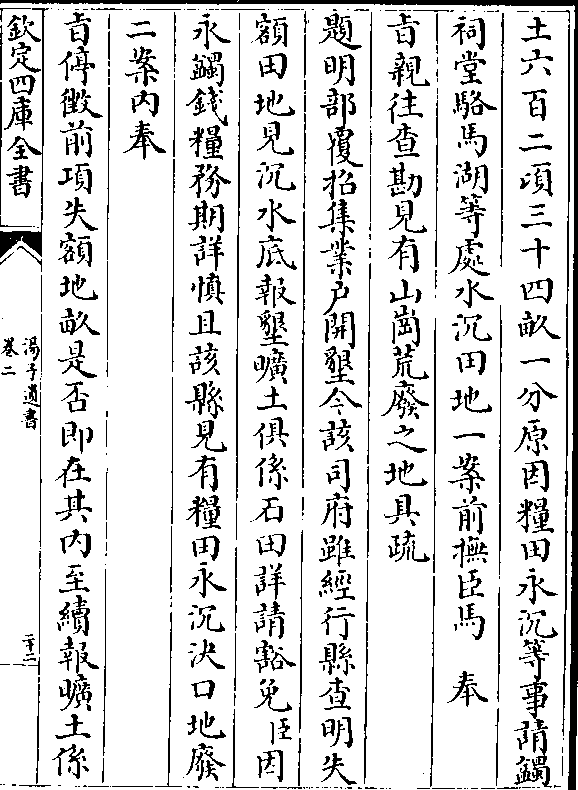 土六百二項三十四畝一分原因糧田永沉等事請蠲
祠堂駱馬湖等處水沉田地一案前撫臣馬　奉
旨親往查勘見有山崗荒廢之地具疏
題明部覆招集業户開墾今該司府雖經行縣查明失
額田地見沉水底報墾曠土俱係石田詳請豁免臣因
永蠲錢糧務期詳慎且該縣見有糧田永沉決口地廢
二案内奉
旨停徴前項失額地畝是否即在其内至續報曠土係
欽定四庫全書
湯子遺書
卷二
二十二